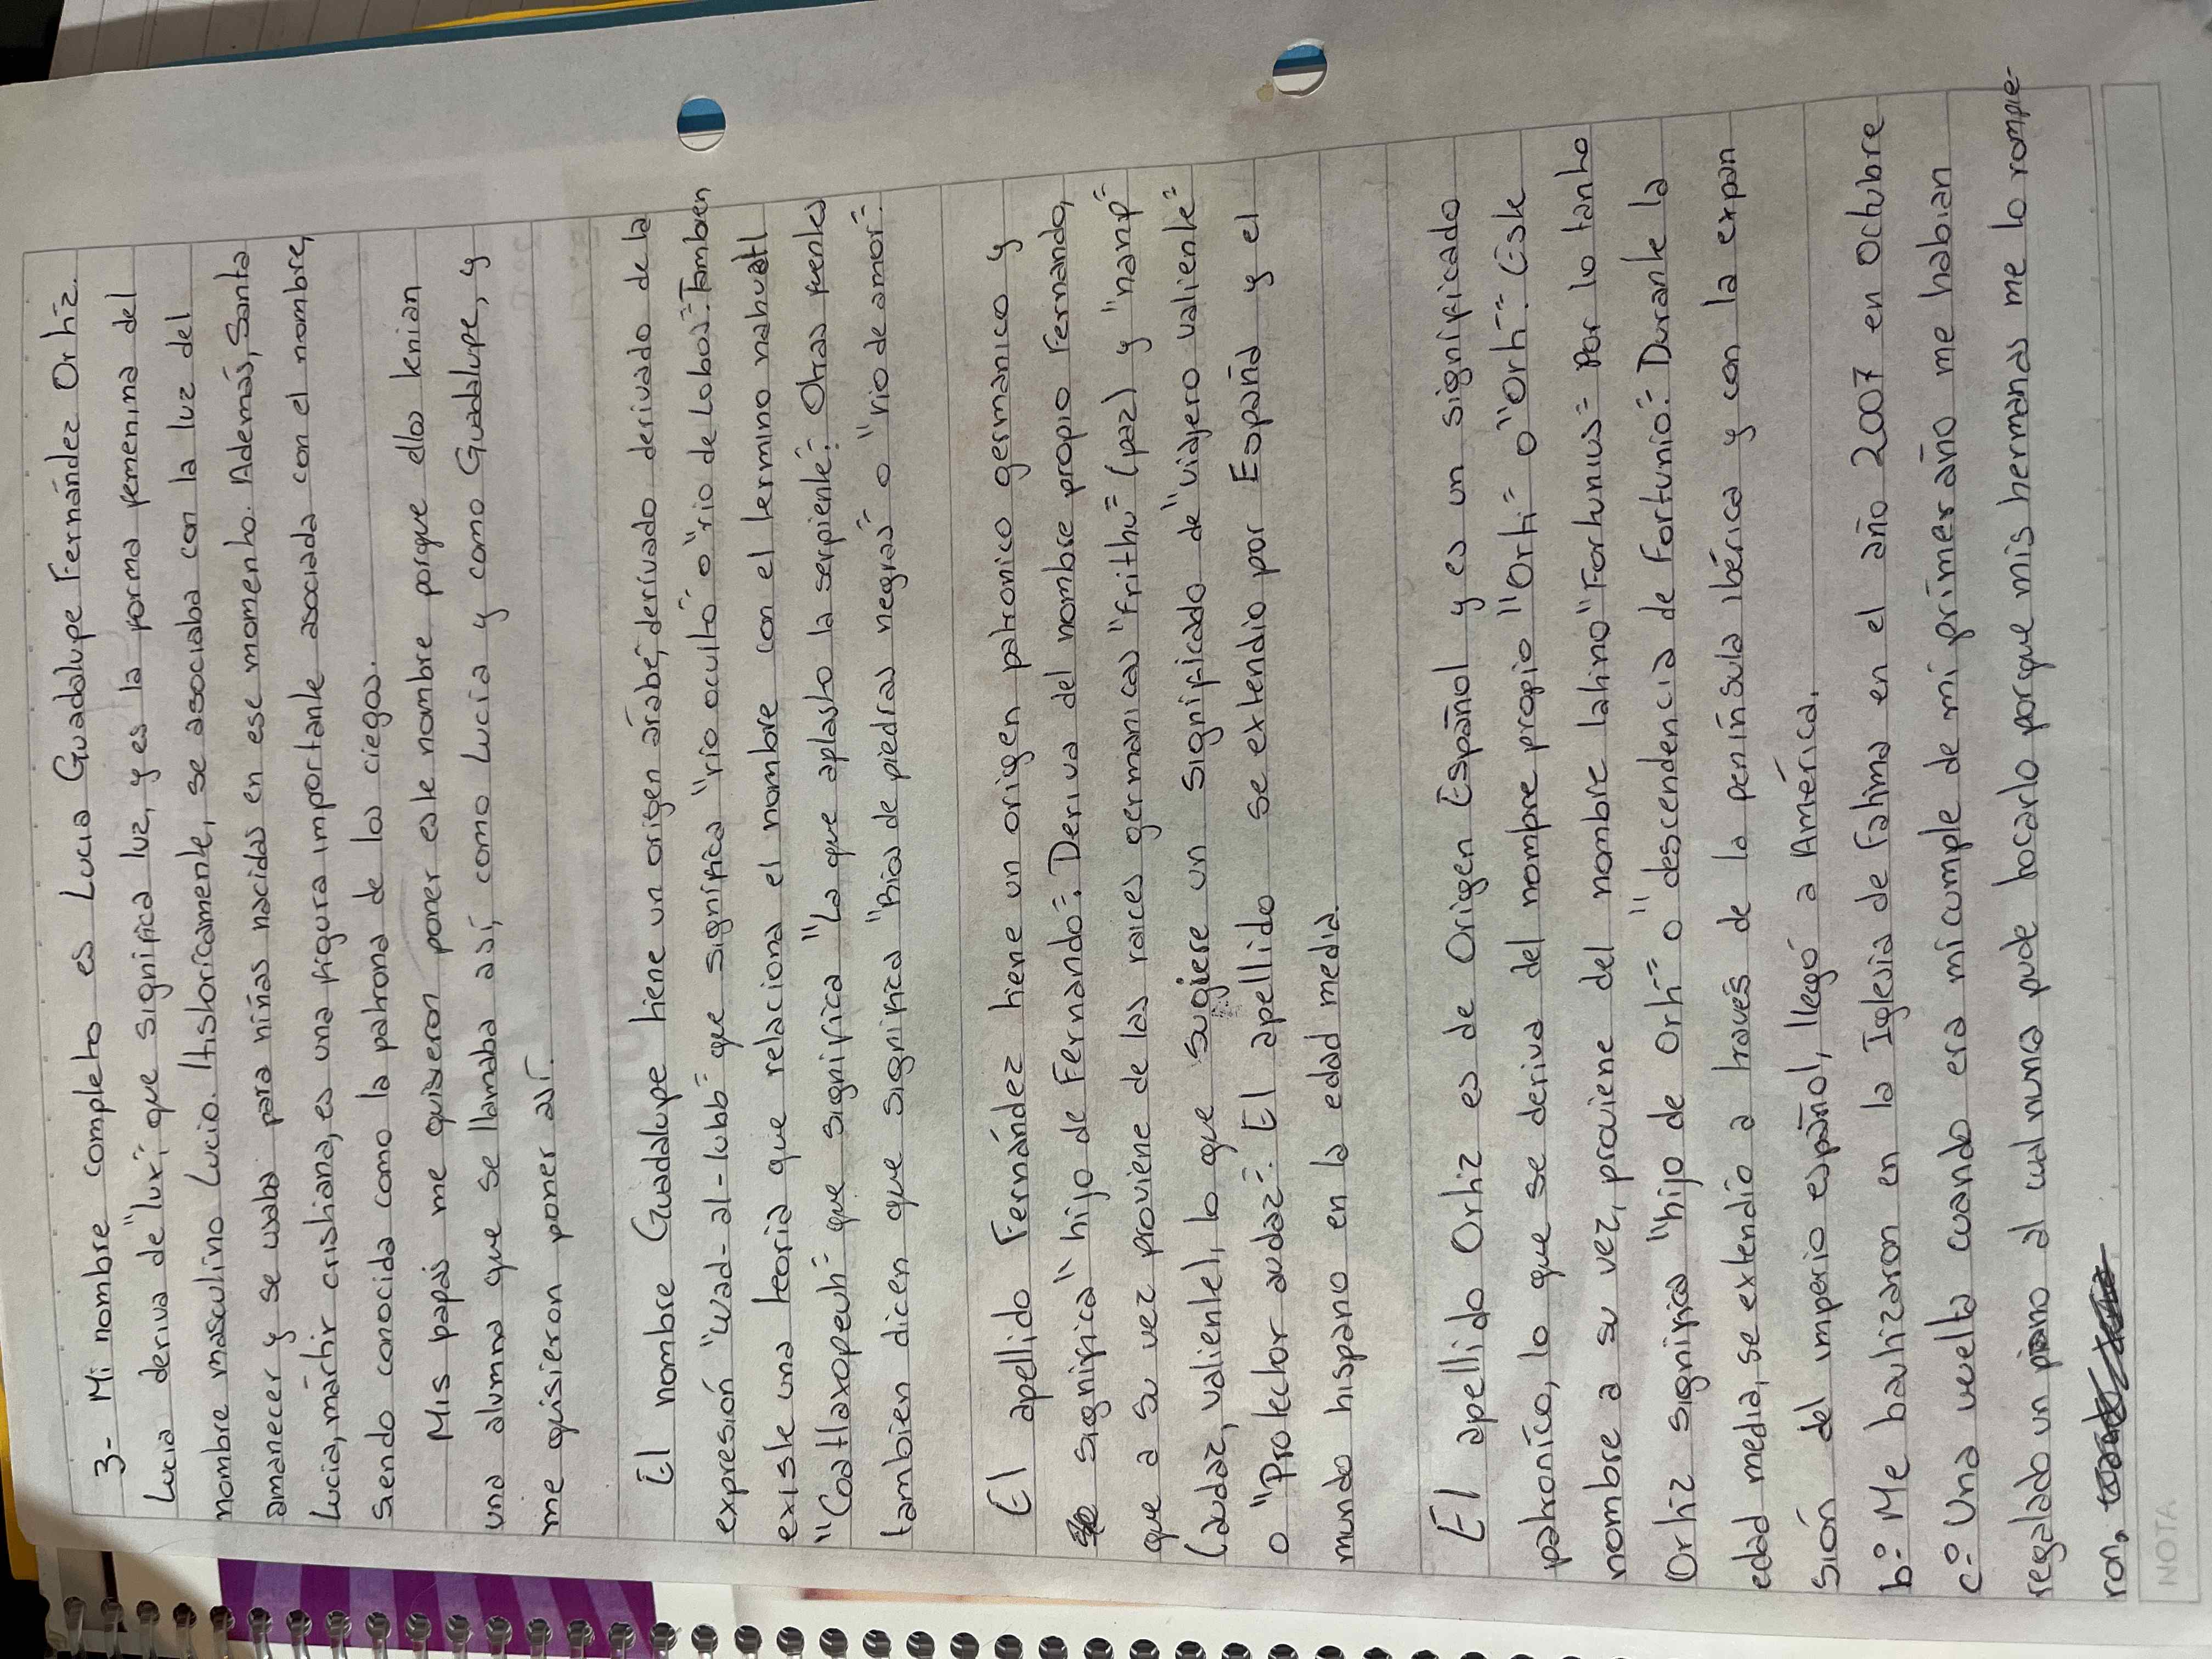 3- Mi nombre completo es Lucia Guadalupe Fernández Ortiz.
Lucia deriva de "lux", que significa luz, y es la forma femenina del
nombre masculino Lucio. Historicamente, se asociaba con la luz del
amanecer y se usaba para niñas nacidas en ese momento. Además, Santa
Lucia, mártir cristiana, es una figura importante asociada con el nombre,
siendo conocida como la patrona de los ciegos.
Mis papás me quisieron poner este nombre porque ellos tenian
una alumna que se llamaba así, como Lucia y como Guadalupe, y
me quisieron poner así.
El nombre Guadalupe tiene un origen árabe, derivado derivado de la
expresión "wad-al-lubb" que significa "rio oculto" o "rio de lobos". Tambien
existe una teoria que relaciona el nombre con el termino nahuatl
"Coatlaxopeuh" que significa "La que aplasto la serpiente". Otras fuentes
tambien dicen que significa "Rios de piedras negras" o "rio de amor".
El apellido Fernández tiene un origen patronico germanico y
significa "hijo de Fernando". Deriva del nombre propio Fernando,
que a su vez proviene de las raices germanicas "Frithu" (paz) y "nanp"
(audaz, valiente), lo que sugiere un significado de "viajero valiente"
o "Protector audaz". El apellido se extendio por España y el
mundo hispano en la edad media.
El apellido Ortiz es de Origen Español y es un significado
patronico, lo que se deriva del nombre propio "Orti" o "Orti". Este
nombre a su vez, proviene del nombre latino "Fortunius" Por lo tanto
Ortiz significa "hijo de Orti" o "descendencia de Fortunio". Durante la
edad media, se extendio a través de la península ibérica y con la expan
sión del imperio español, llegó a América.
b.º Me bautizaron en la Iglesia de Fatima en el año 2007 en Octubre
c.º Una vuelta cuando era mi cumple de mi primer año me habian
regalado un piano al cual nunca pude tocarlo porque mis hermanas me lo rompie-
ron.
NOTA